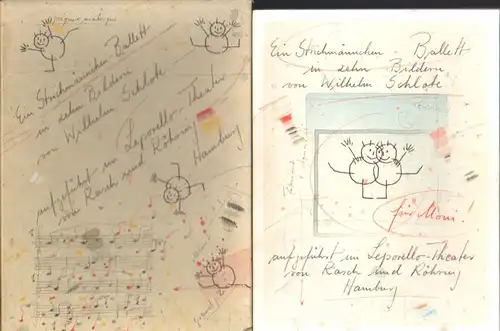 Ein Strichmännchen Ballett
in zehn Bildern
von Wilhelm Schlote
aufgeführt im Leporello-Theater
von Rasch und Röhring
Hamburg
Ein Strichmännchen - Ballett
in zehn Bildern
von Wilhelm Schlote
für Moni.
aufgeführt im Leporello-Theater
von Rasch und Röhring
Hamburg